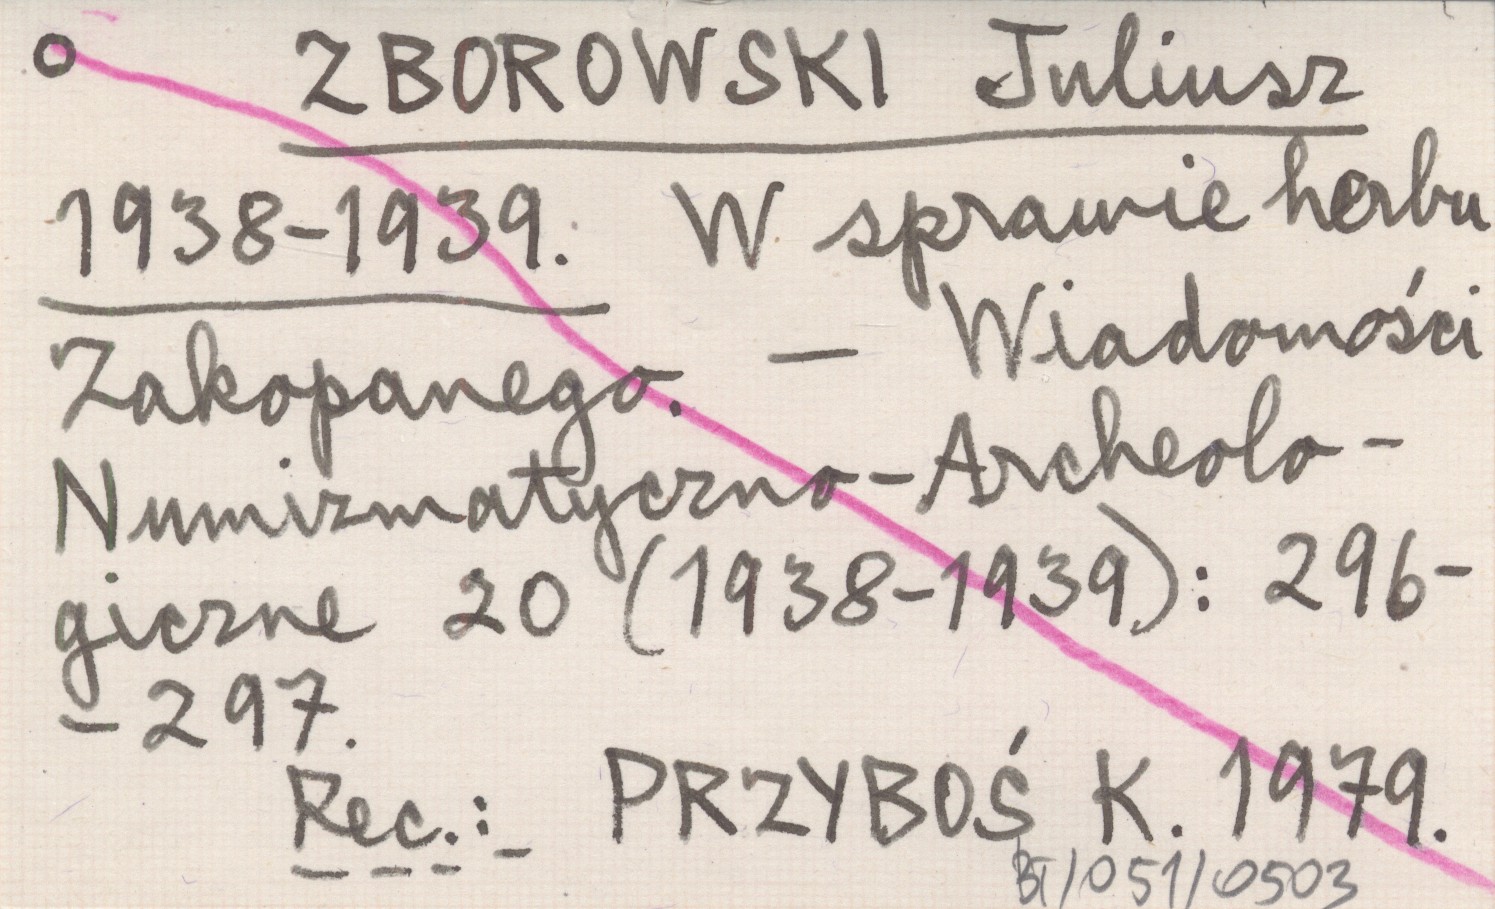 ZBOROWSKI Juliusz
1938-1939. W sprawie herbu
Zakopanego. — Wiadomości
Numizmatyczno-Archeolo-
giczne 20 (1938-1939): 296-
-297.
Rec.: PRZYBOŚ K. 1979.
BT/051/0503